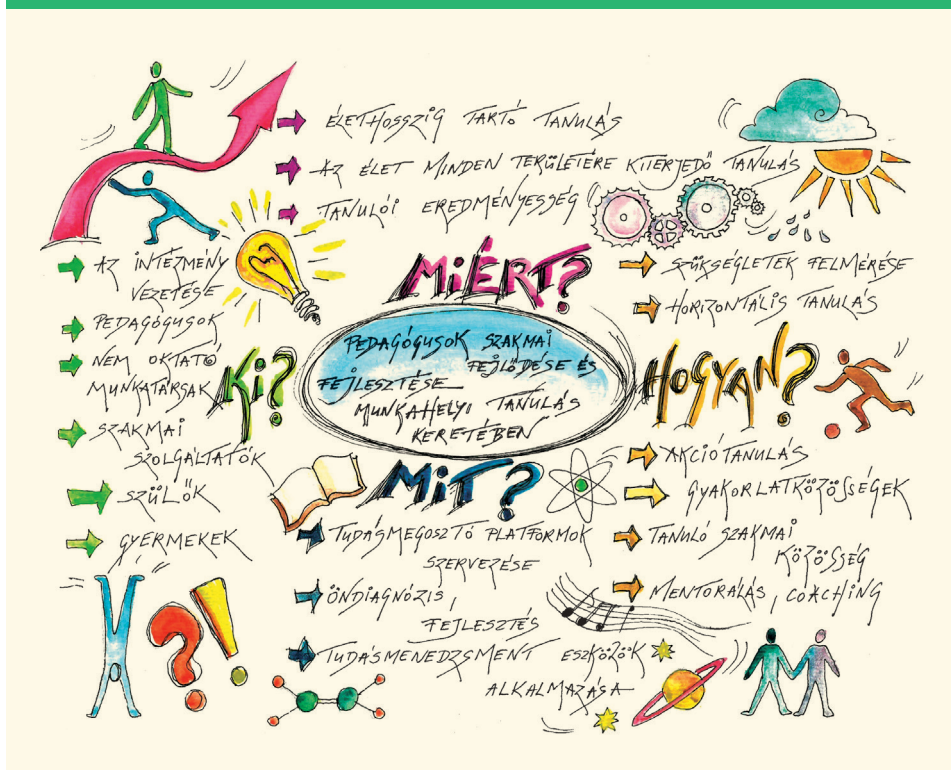 ÉLETHOSSZIG TARTÓ TANULÁS
AZ ÉLET MINDEN TERÜLETÉRE KITERJEDŐ TANULÁS
TANULÓI EREDMÉNYESSÉG
MIÉRT?
AZ INTÉZMÉNY
VEZETÉSE
PEDAGÓGUSOK
NEM OKTATÓ
MUNKATÁRSAK
SZAKMAI
SZOLGÁLTATÓK
SZÜLŐK
GYERMEKEK
KI?
PEDAGÓGUSOK SZAKMAI
FEJLŐDÉSE ÉS
FEJLESZTÉSE
MUNKAHELYI TANULÁS
KERETÉBEN
SZÜKSÉGLETEK FELMÉRÉSE
HORIZONTÁLIS TANULÁS
HOGYAN?
AKCIÓTANULÁS
GYAKORLATKÖZÖSSÉGEK
TANULÓ SZAKMAI
KÖZÖSSÉG
MENTORÁLÁS, COACHING
MIT?
TUDÁSMEGOSZTÓ PLATFORMOK
SZERVEZÉSE
ÖNDIAGNÓZIS,
FEJLESZTÉS
TUDÁSMENEDZSMENT ESZKÖZÖK
ALKALMAZÁSA
?!